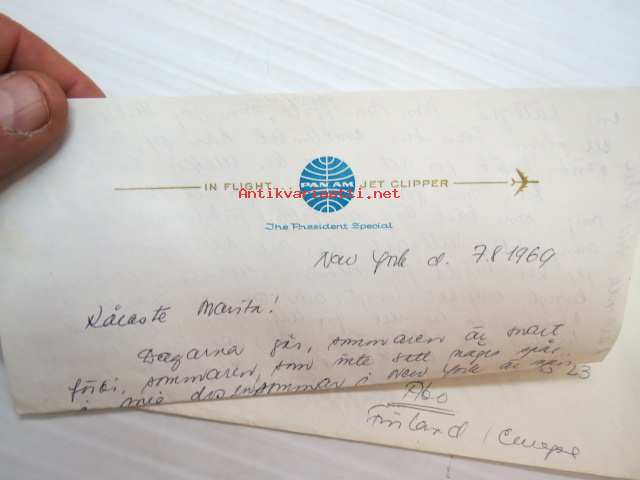 IN FLIGHT... PAN AM JET CLIPPER
Antikvariaatti.net
The President Special
New York d. 7.8.1969
Käraste Marita!
Dagarna går, sommaren är snart
förbi, sommaren, som inte sett några spår
i mig den sommar i New York är
23
Åbo
Finland / Europe